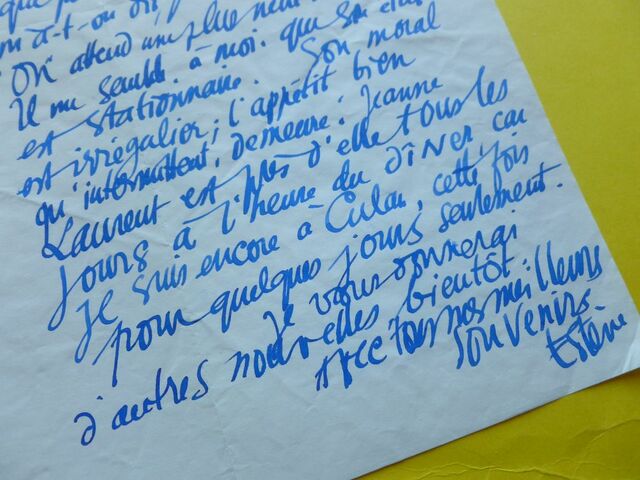 que
m'a-t-on dit,
On attend une plume
Il me semble à moi que son état
est stationnaire. Son moral
est irrégulier; l'appétit bien
qu'intermittent, demeure. Jeanne
Laurent est près d'elle tous les
jours à l'heure du dîner car
je suis encore à Culan, cette fois
pour quelques jours seulement.
Je vous donnerai
d'autres nouvelles bientôt
avec tous nos meilleurs
souvenirs
Estève